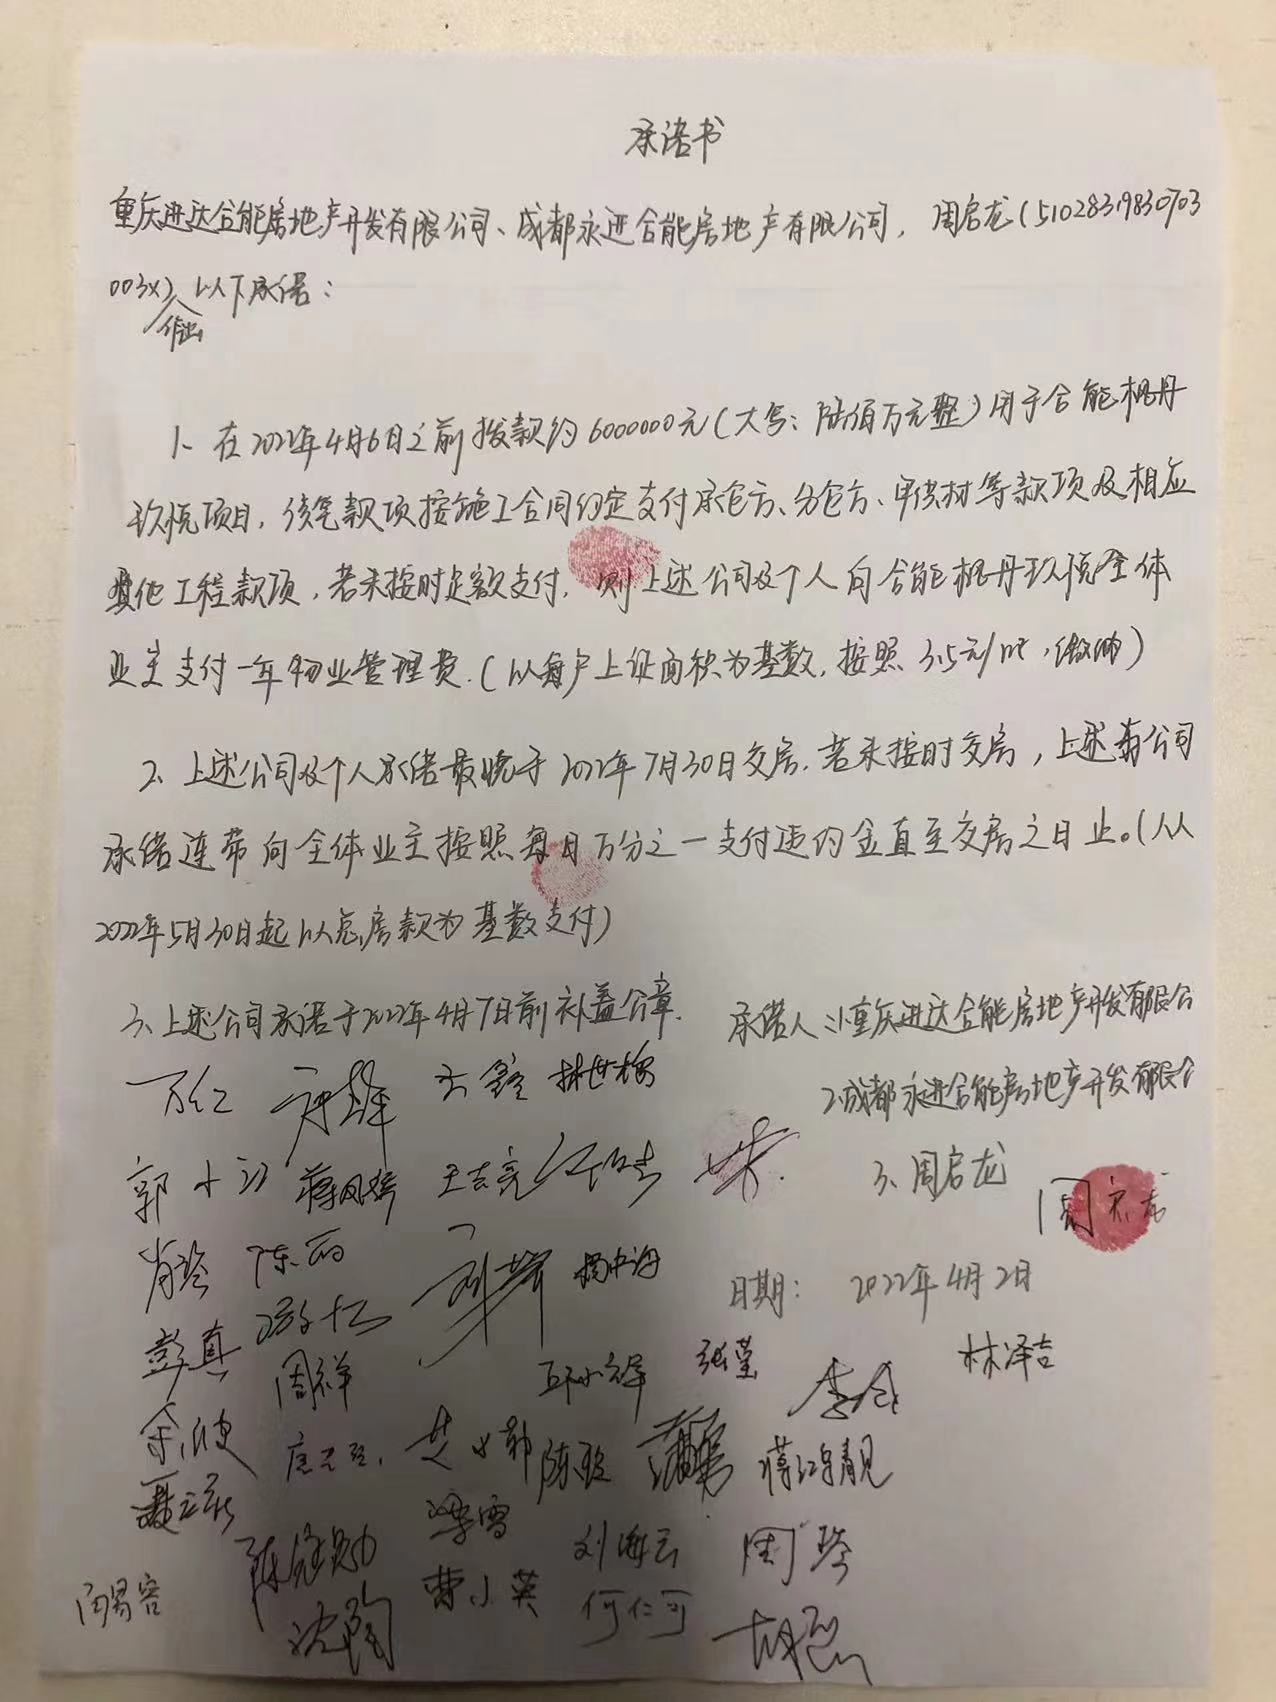 承诺书
重庆进达合能房地产开发有限公司、成都永进合能房地产有限公司, 周启龙(51028319830703
003X) 作出 以下承诺:
1、在2022年4月6日之前拨款约6000000元(大写: 陆佰万元整)用于合能枫丹
玖悦项目, 该笔款项按施工合同约定支付承包方、分包方、甲供材等款项及相应
其他工程款项, 若未按时足额支付, 则上述公司及个人向合能枫丹玖悦全体
业主支付一年物业管理费.(以每户上证面积为基数, 按照3.5元/㎡, 缴纳)
2、上述公司及个人承诺最晚于2022年7月30日交房. 若未按时交房, 上述公司
承诺连带向全体业主按照每日万分之一支付违约金直至交房之日止。(从
2022年5月30日起以总房款为基数支付)
3、上述公司承诺于2022年4月7日前补盖公章.
承诺人:1.重庆进达合能房地产开发有限公
2.成都永进合能房地产开发有限公
3、周启龙
周启龙
日期: 2022年4月2日
万仁
郭小江 蒋凤婷 王志亮
肖玲 陈丽
彭真 周祥 邱小锋 张莹 林泽吉
陈聪
梁雪 刘海云 周琴
周易容 沈陶 曹小英 何仁可